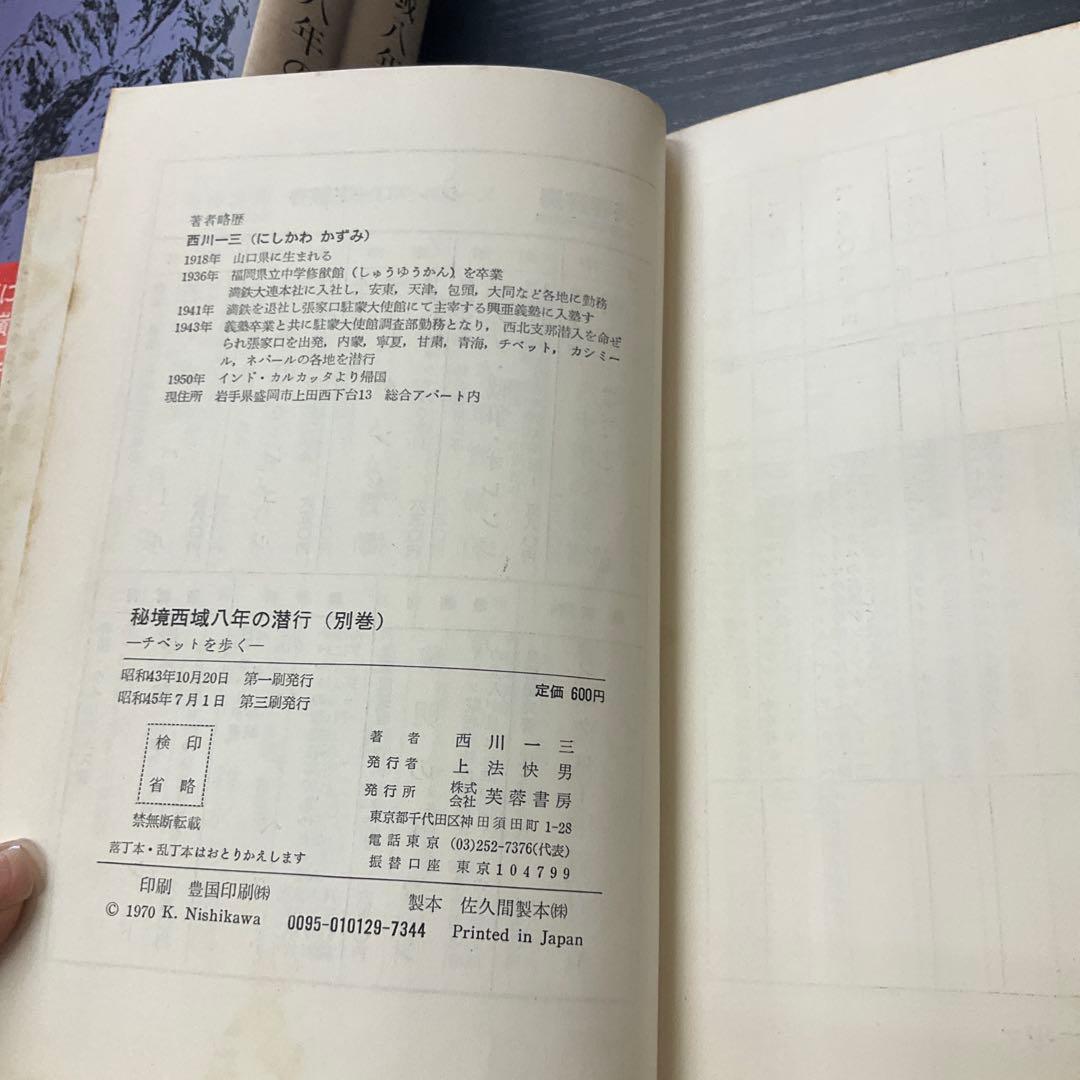 八年の
域八年
著者略歴
西川一三（にしかわ かずみ）
1918年 山口県に生まれる
1936年 福岡県立中学修猷館（しゅうゆうかん）を卒業
満鉄大連本社に入社し，安東，天津，包頭，大同など各地に勤務
1941年 満鉄を退社し張家口駐蒙大使館にて主宰する興亜義塾に入塾す
1943年 義塾卒業と共に駐蒙大使館調査部勤務となり，西北支那潜入を命ぜ
られ張家口を出発，内蒙，寧夏，甘粛，青海，チベット，カシミー
ル，ネパールの各地を潜行
1950年 インド・カルカッタより帰国
現住所 岩手県盛岡市上田西下台13 総合アパート内
秘境西域八年の潜行（別巻）
—チベットを歩く—
昭和43年10月20日 第一刷発行
昭和45年7月1日 第三刷発行
定価 600円
検印
省略
禁無断転載
落丁本・乱丁本はおとりかえします
著者 西川一三
発行者 上法快男
発行所 株式会社 芙蓉書房
東京都千代田区神田須田町1-28
電話東京 (03)252-7376(代表)
振替口座 東京104799
印刷 豊国印刷㈱
製本 佐久間製本㈱
© 1970 K. Nishikawa 0095-010129-7344 Printed in Japan